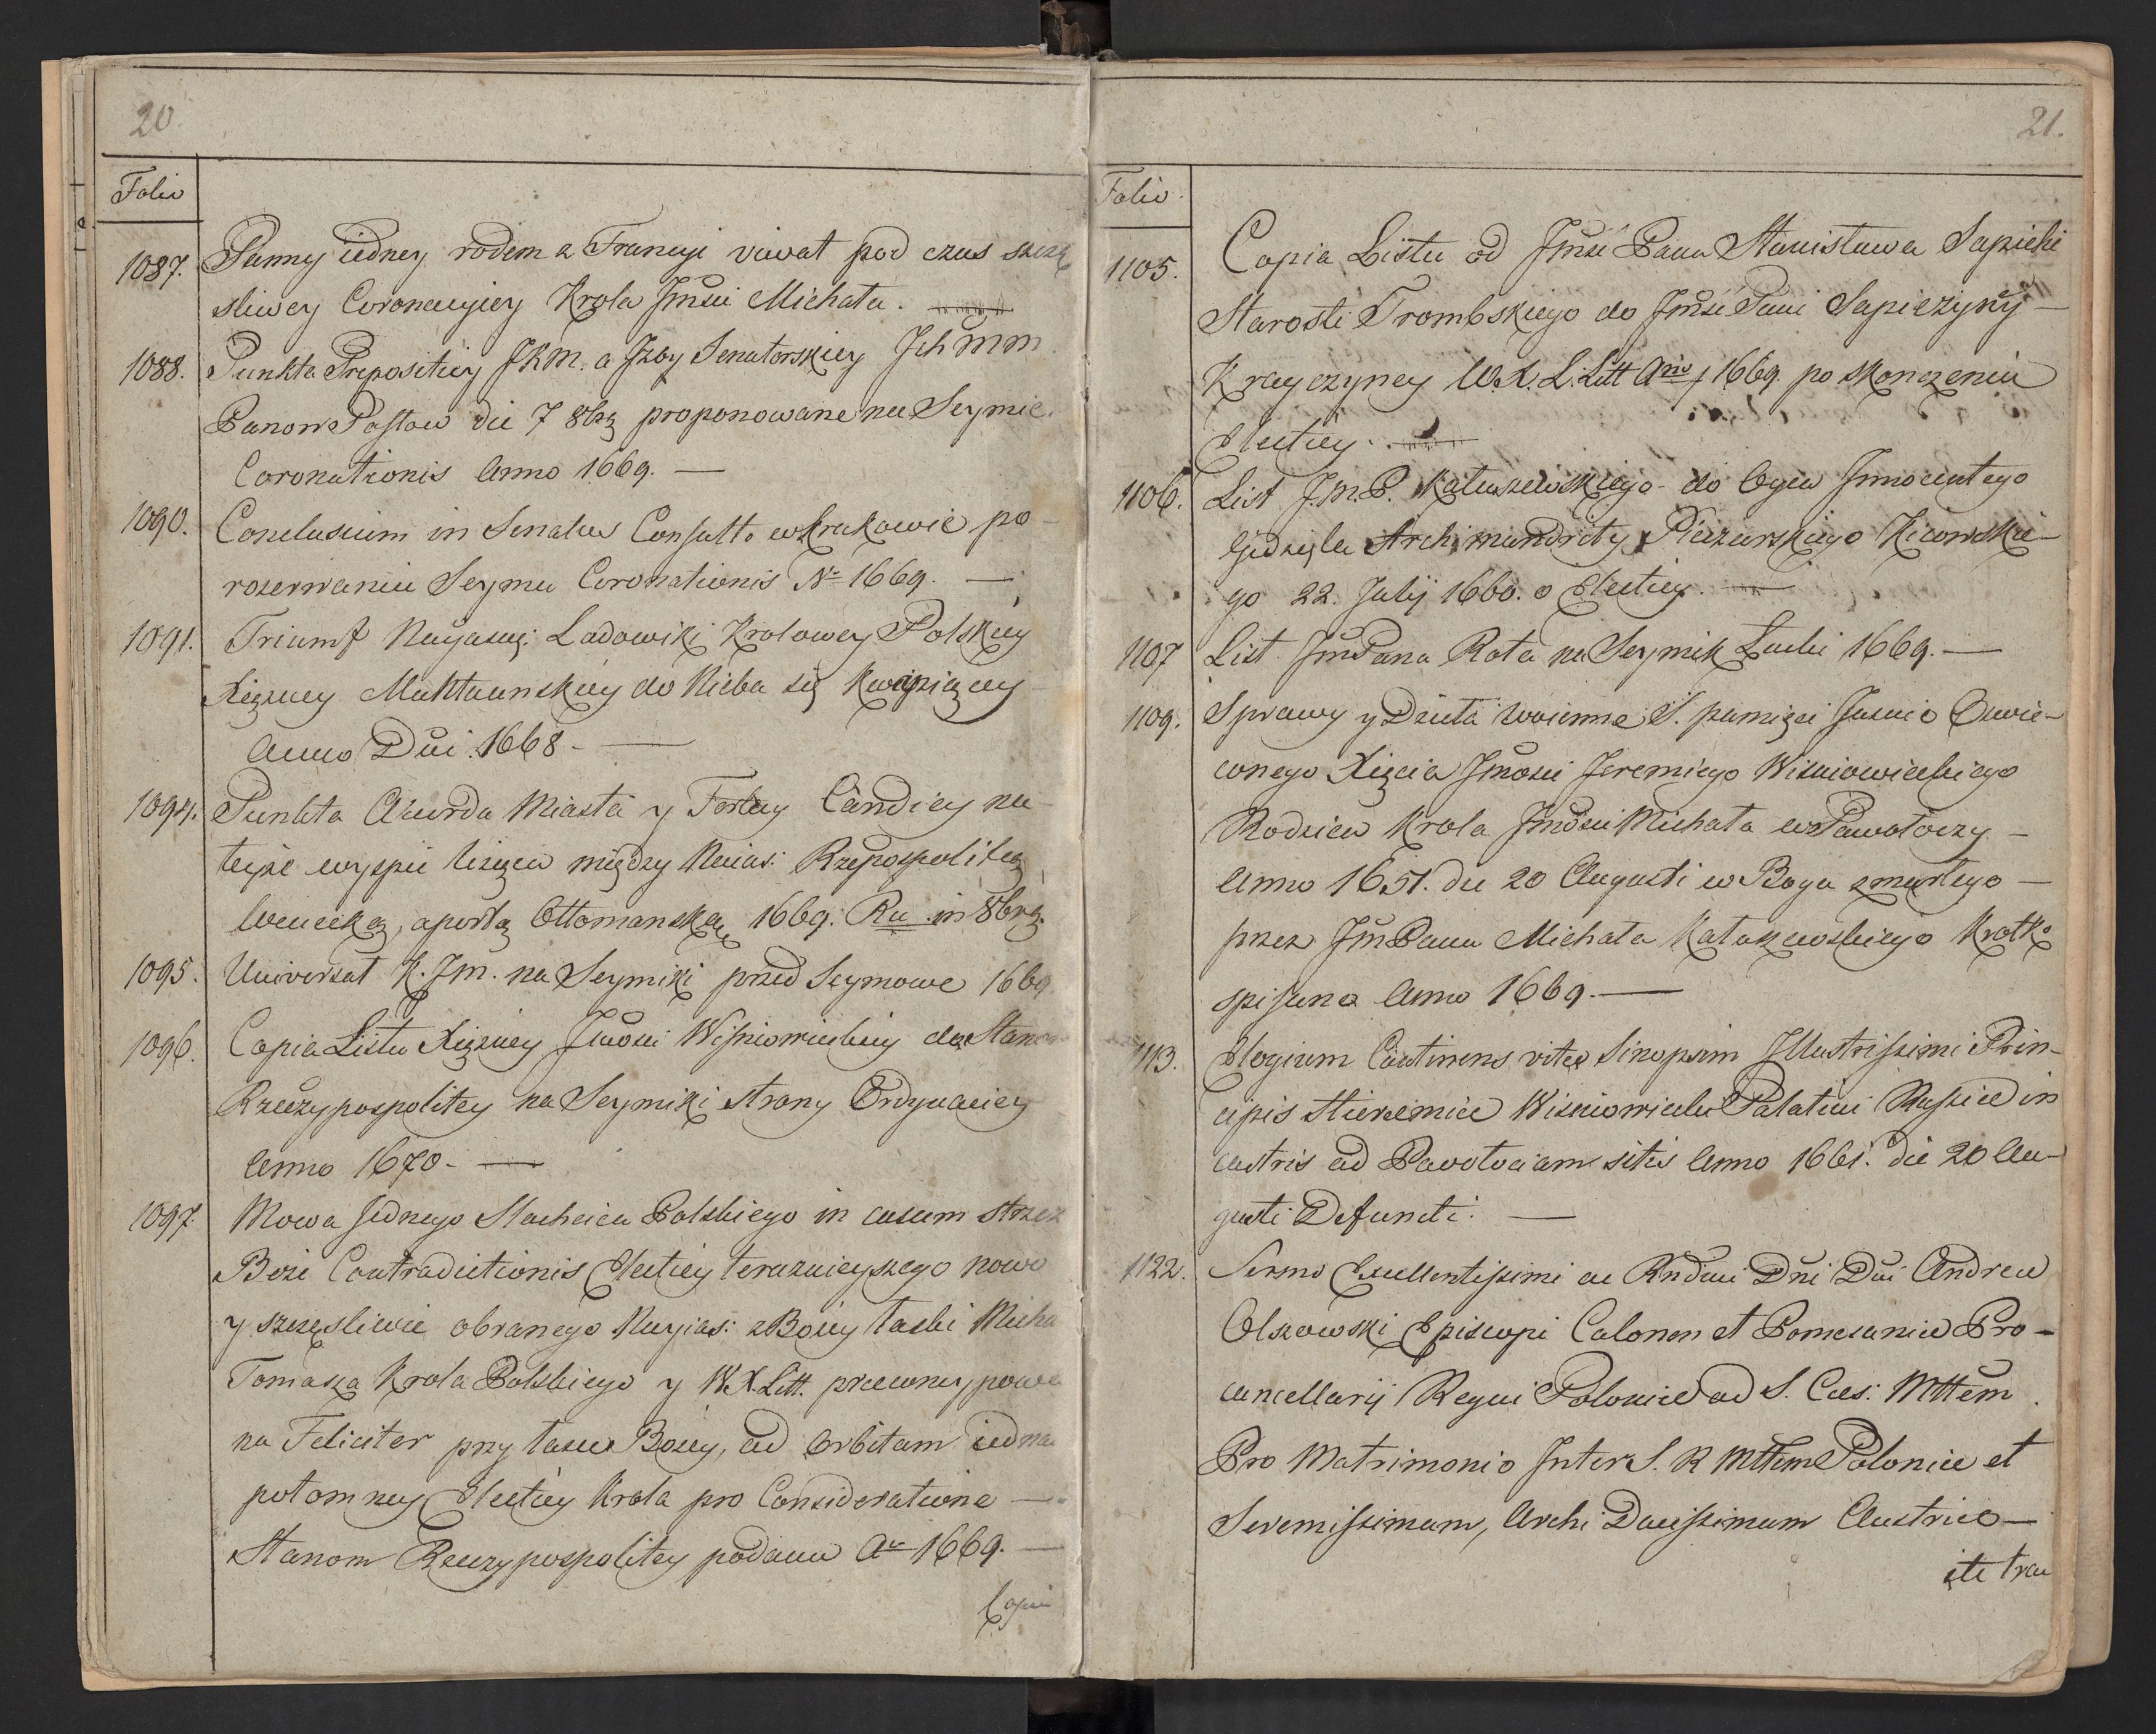 20.
Folio
1087. Panny iedney rodem z Francyi vivat pod czas szczę
sliwey Coronacyiey Krola Jmsci Michała.
1088. Punkta Propositiey JKM. a Jzby Senatorskiey Jch mm
Panow Posłow die 7 8brȝ proponowane na Seymie
Coronationis Anno 1669. —
1090. Conclusum in Senatus Consulto w Krakowie po-
rozerwaniu Seymu Coronationis Nº 1669. —
1091. Triumf Nayasn: Ladowiki Krolowey Polskiey
Xiężney Maktuanskiey do Nieba się kwapiącey
Anno Dni. 1668. —
1094. Punkta Akurdu Miasta y Fortecy Candiey na
teyże wyspie leżącey między Naias: Rzepospolitą
Wenecką, a portą Ottomanską 1669. Ru in 8brȝ.
1095. Uniwersał K. Jm. na Seymiki przed Seymowe 1669.
1096. Copia Listu Xiężney Jmości Wiśniowieckiey do Stanow
Rzeczypospolitey na Seymiki strony Ordynaciey
Anno 1670. —
1097. Mowa Jednego Slachcica Polskiego in casum strzeż
Boże Contradictionis Electiey teraznieyszego nowo
y szczęsliwie obranego Nayias: z Bożey łaski Micha
Tomasza Krola Polskiego y W.X.Litt. przewney powa
na Feliciter przy łasce Bożey, ad Orbitam iedna
potomney Electiey Krola pro Consideratione —
Stanom Rzeczypospolitey podana Aº 1669. —
Copia
21.
Folio.
1105. Copia Listu od Jmśći Pana Stanisława Sapiehi
Starosti Trombskiego do Jmśći Pani Sapieżyny —
Krayczyney W.X.L.Litt Anº 1669. po skonczeniu
Electiey.
1106. List J.M.P. Kałuszewskiego do Oyca Jnnocentego
Gizela Archimandrity Pieczarskiego Kiiowskie-
go 22. Julij 1660. o Electiey. —
1107 List Jm Pana Rota na Seymik Lucki 1669. —
1109. Sprawy y Dzieła woienne Ś. pamięci Jasnie Oswie-
conego Xięcia Jmości Jeremiego Wiśniowieckiego
Rodzica Krola Jmości Michała w Pawołoczy —
Anno 1651. die 20 Augusti w Bogu zmarłego —
przez Jm Pana Michała Kałuszewskiego Krotko
spisane Anno 1669. —
1113. Elogium Continens vitæ Sinopsim Jllustrissimi Prin-
cipis Hieremiæ Wisniowiecki Palatini Russiæ in
castris ad Pawołociam sitis Anno 1661. die 20 Au-
gusti Defuncti. —
1122. Sermo Excellentissimi ac Rndmi Dni Dni Andreæ
Olszowski Episcopi Culmen et Pomesaniæ Pro-
cancellarij Regni Poloniæ ad S. Cæs: Mttem.
Pro Matrimonio Inter S. R Mttem Poloniæ et
Serenissimam, Archi Ducissimam Austriæ —